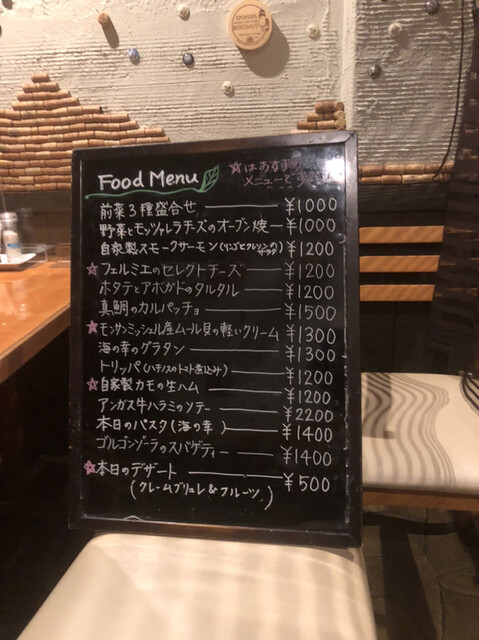 Food Menu
☆はおすすめ
メニューです
前菜3種盛合せ ¥1000
野菜とモッツァレラチーズのオーブン焼 ¥1000
自家製スモークサーモン(リンゴとクレソンのサラダ) ¥1200
☆フェルミエのセレクトチーズ ¥1200
ホタテとアボカドのタルタル ¥1200
真鯛のカルパッチョ ¥1500
☆モンサンミッシェル産ムール貝の軽いクリーム ¥1300
海の幸のグラタン ¥1300
トリッパ(ハチノスのトマト煮込み) ¥1200
☆自家製カモの生ハム ¥1200
アンガス牛ハラミのソテー ¥2200
本日のパスタ(海の幸) ¥1400
ゴルゴンゾーラのスパゲティー ¥1400
☆本日のデザート ¥500
(クレームブリュレ&フルーツ)